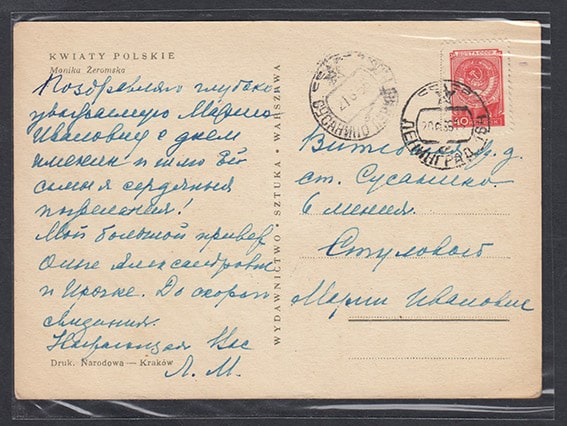 KWIATY POLSKIE
Monika Żeromska
Поздравляю глубоко
уважаемую Марию
Ивановну с днем
именин и шлю Ей
самыя сердечныя
пожелания!
Мой большой привет
Ольге Александровне
и Ирочке. До скорого
свидания.
Вас
Л. М.
Druk. Narodowa — Kraków
WYDAWNICTWO SZTUKA • WARSZAWA
ПОЧТА СССР
ЛЕНИНГРАД
ж. д.
ст. Сусанино.
6 линия.
Стуловой
Марии Ивановне